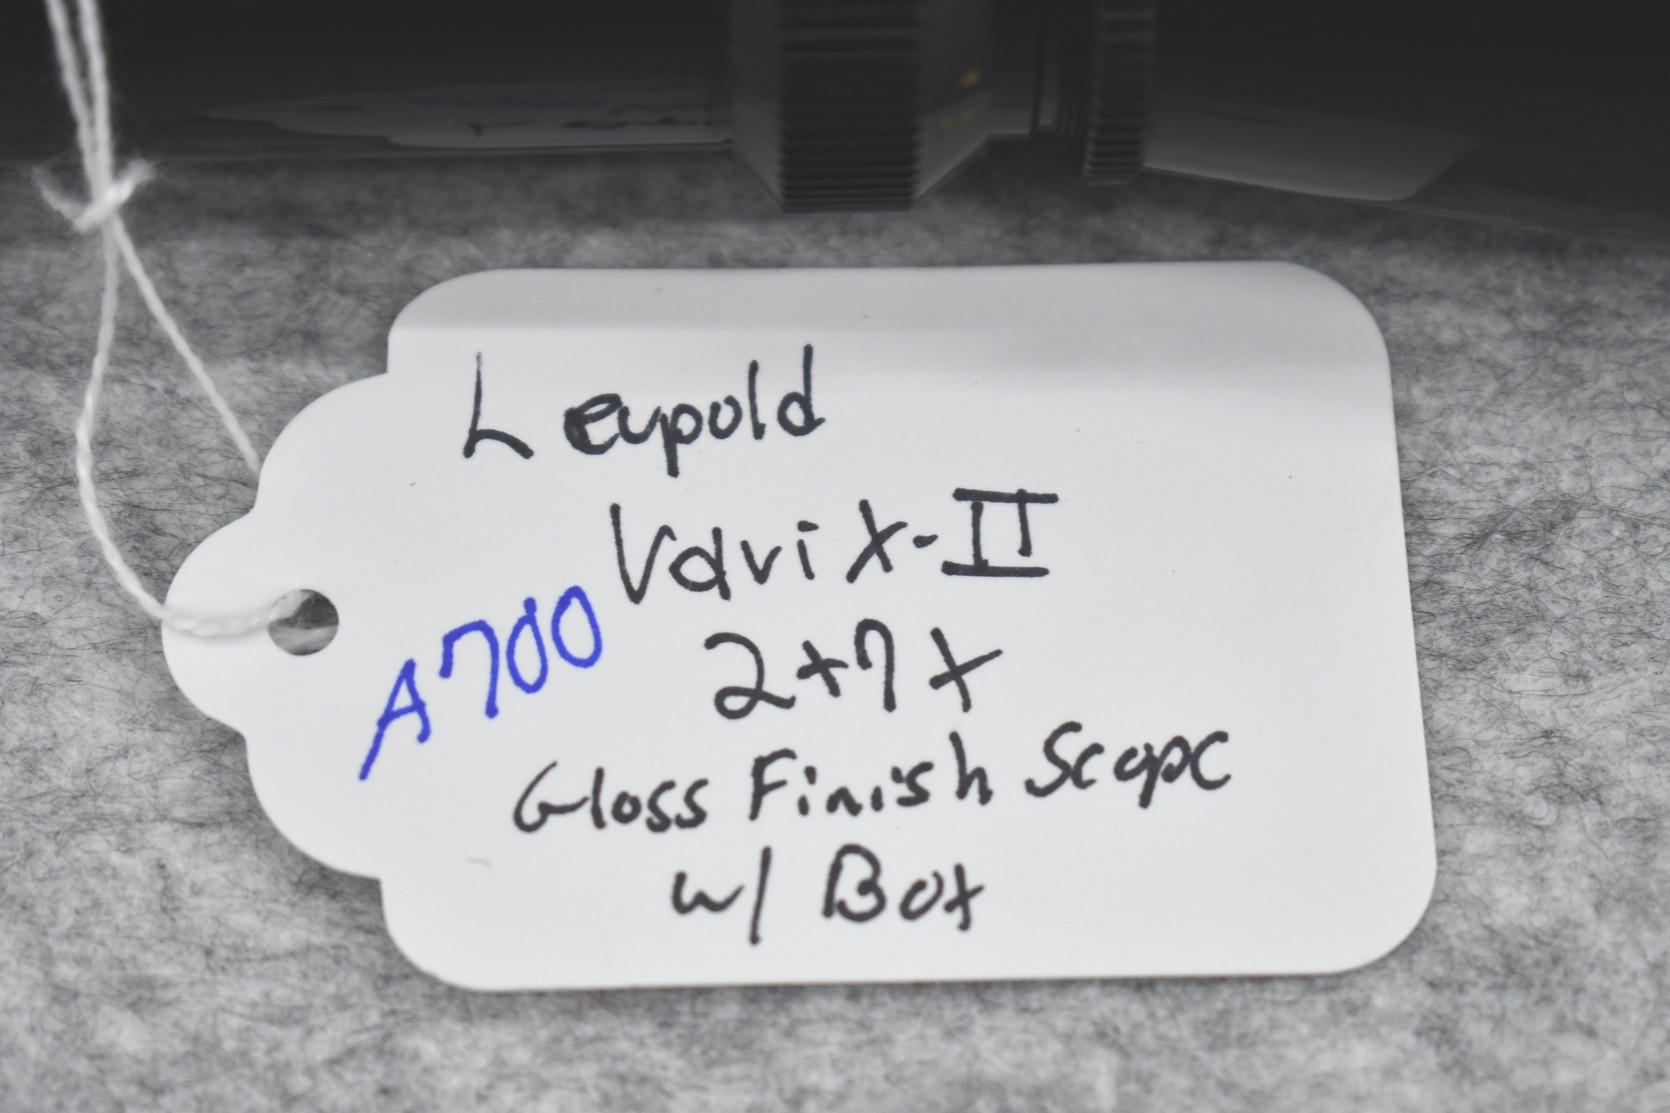 Leupold
Vari X-II
A700
2+7x
Gloss Finish Scope
w/ Box